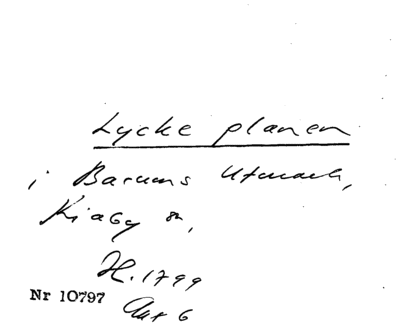 Lyckeplanen
i Barums Utmark,
Kiaby sn,
H. 1799
Nr 10797
Akt 6